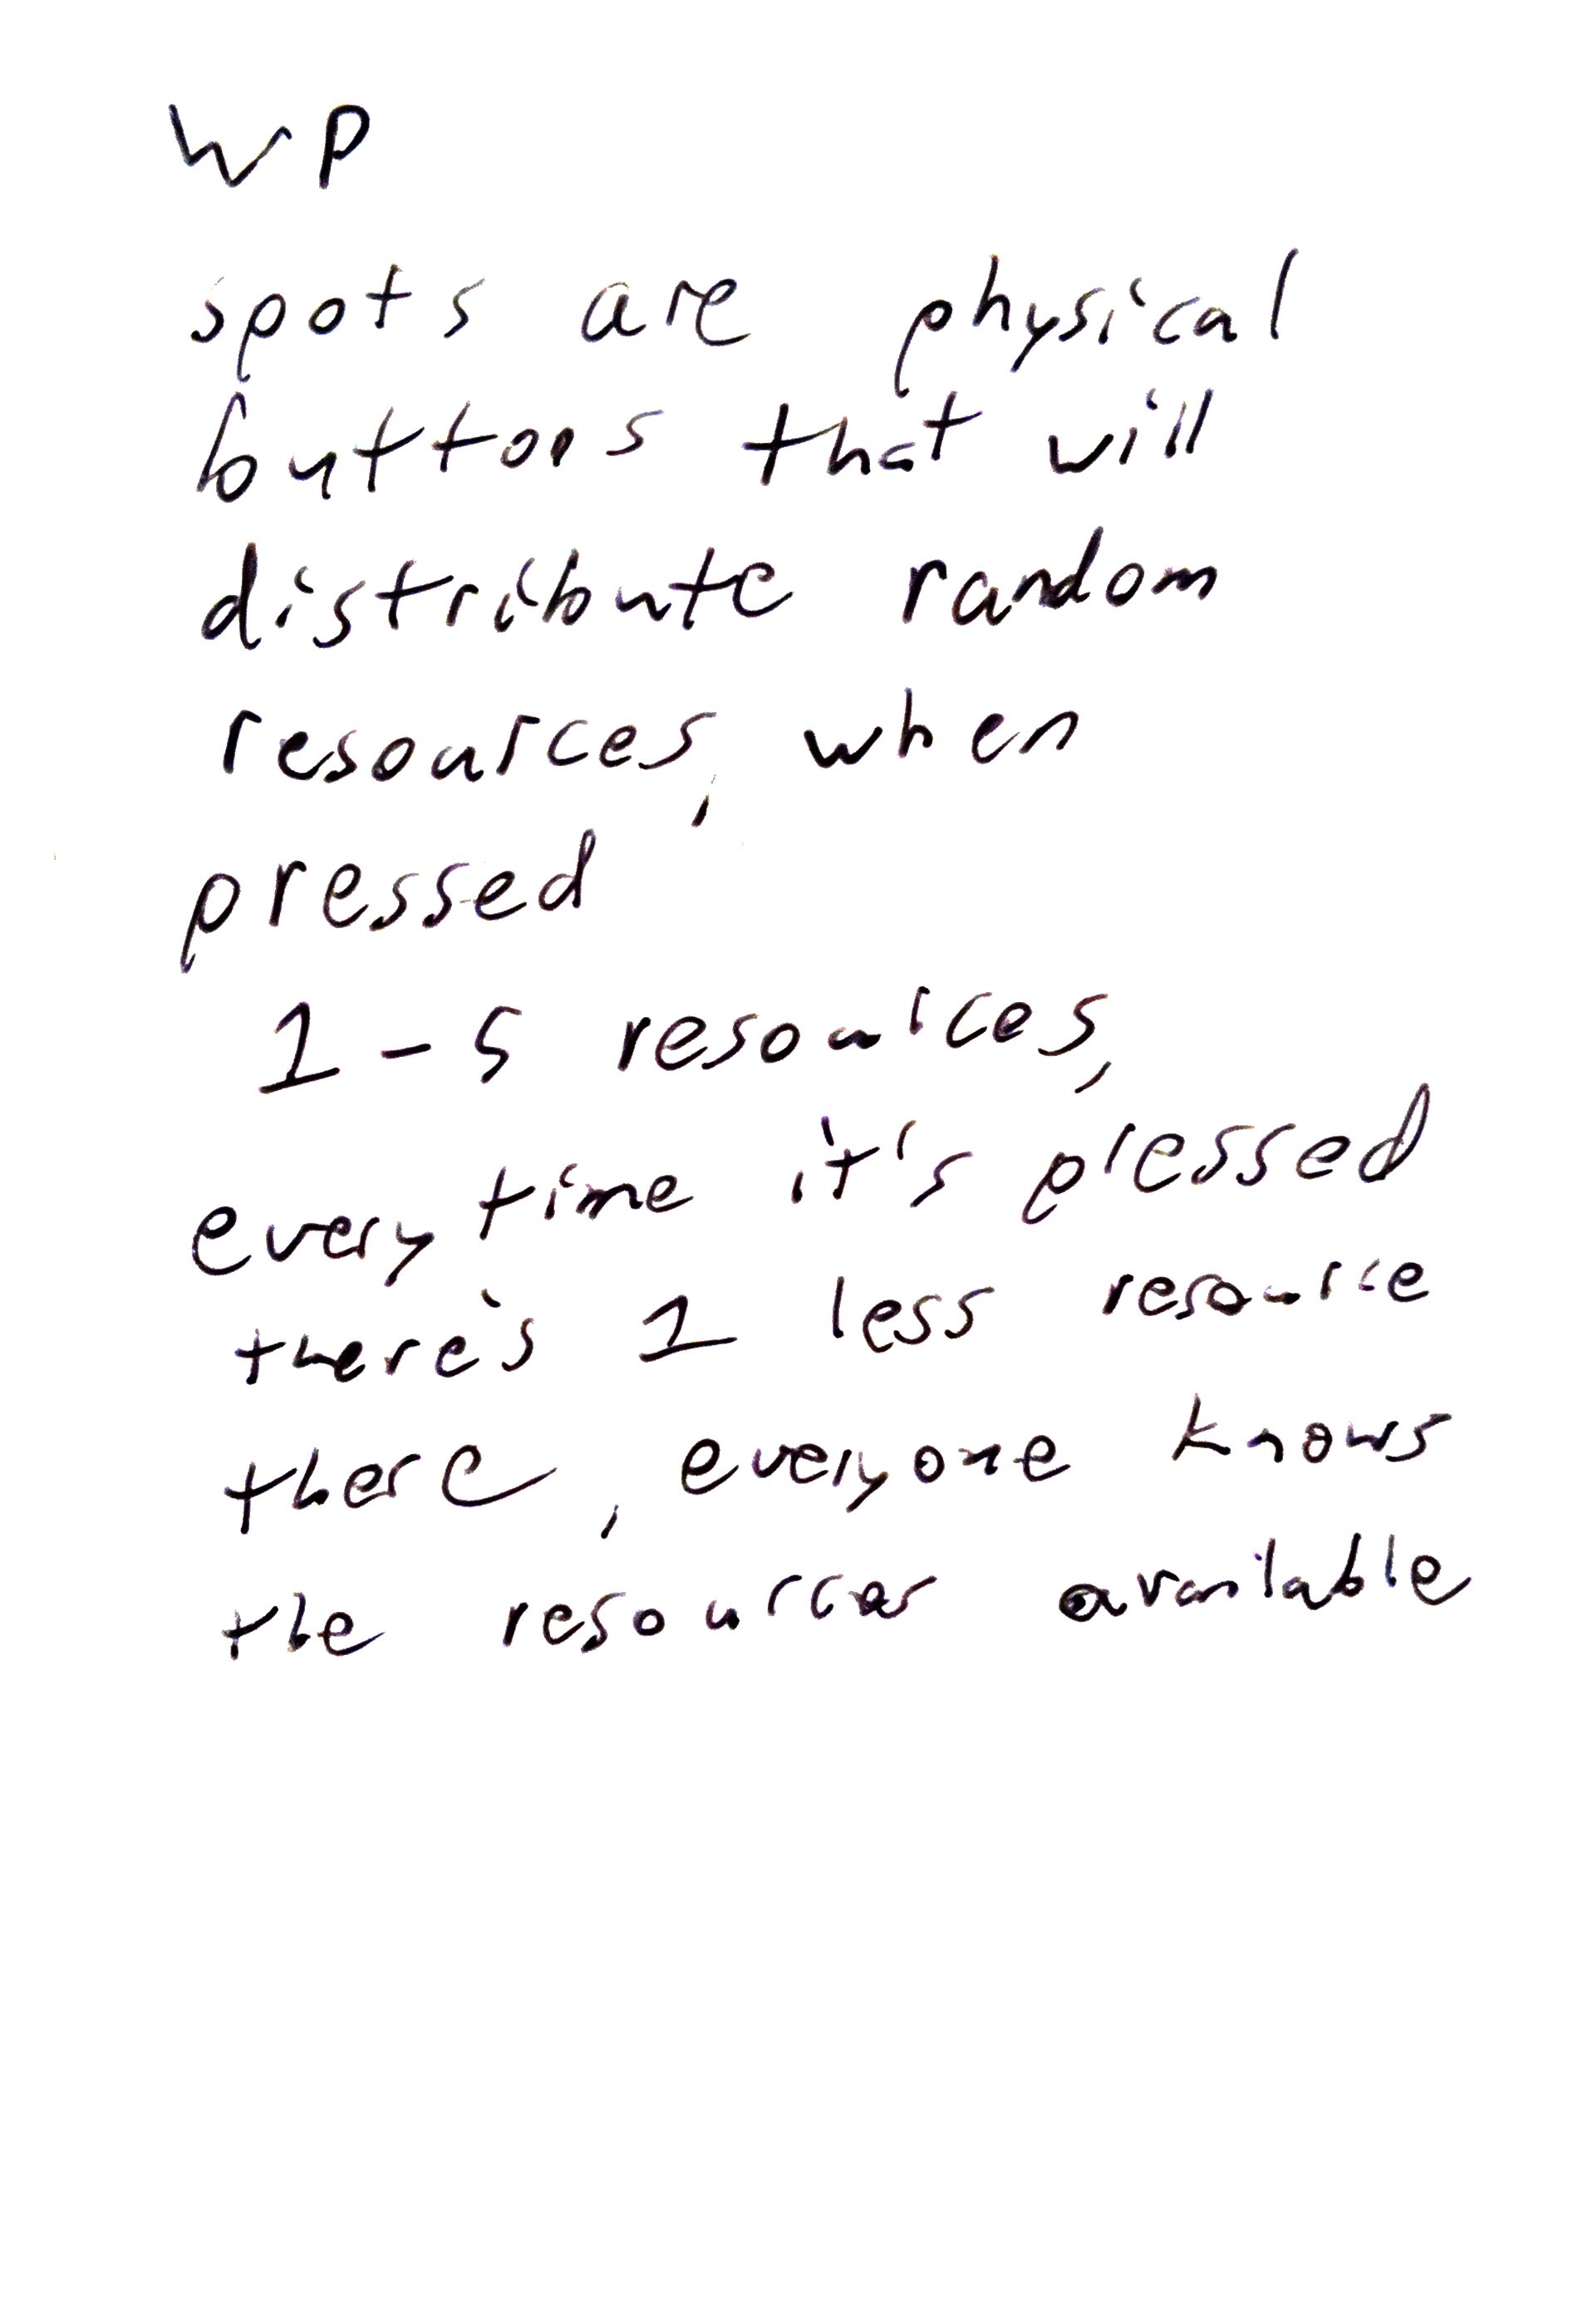 WP
spots are physical
buttons that will
distribute random
resources, when
pressed
1-5 resources,
every time it's pressed
there's 1 less resource
there, everyone knows
the resources available